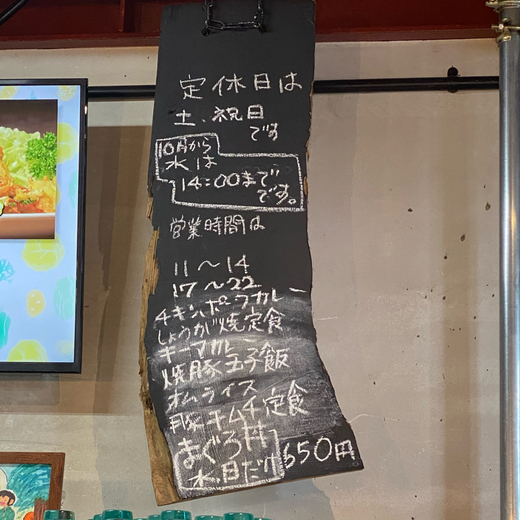 定休日は
土、祝日
です
10月から
水は
14:00まで
です。
営業時間は
11〜14
17〜22
チキン、ポークカレー
しょうが焼定食
キーマカレー
焼豚玉子飯
オムライス
豚キムチ定食
まぐろ丼
水日だけ
650円